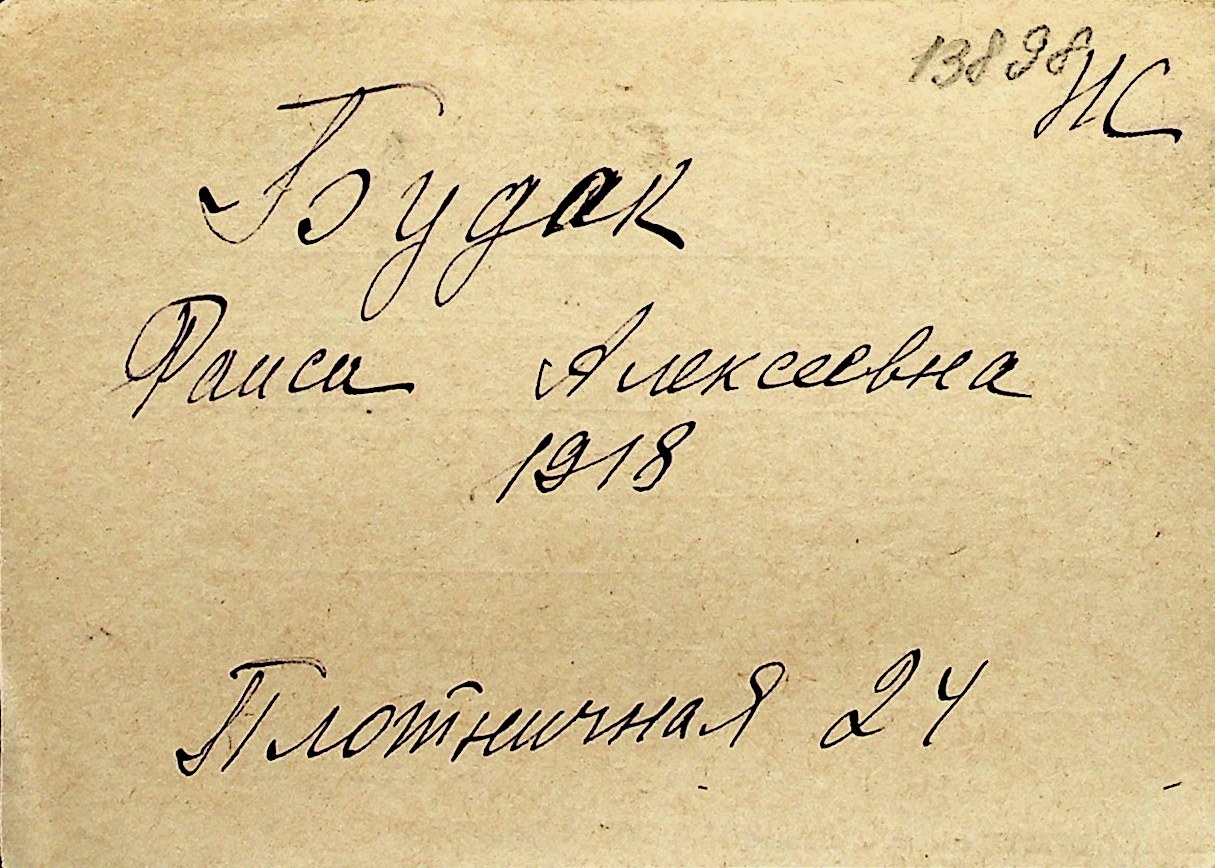 13898
НС
Будак
Раиса Алексеевна
1918
Плотничная 24